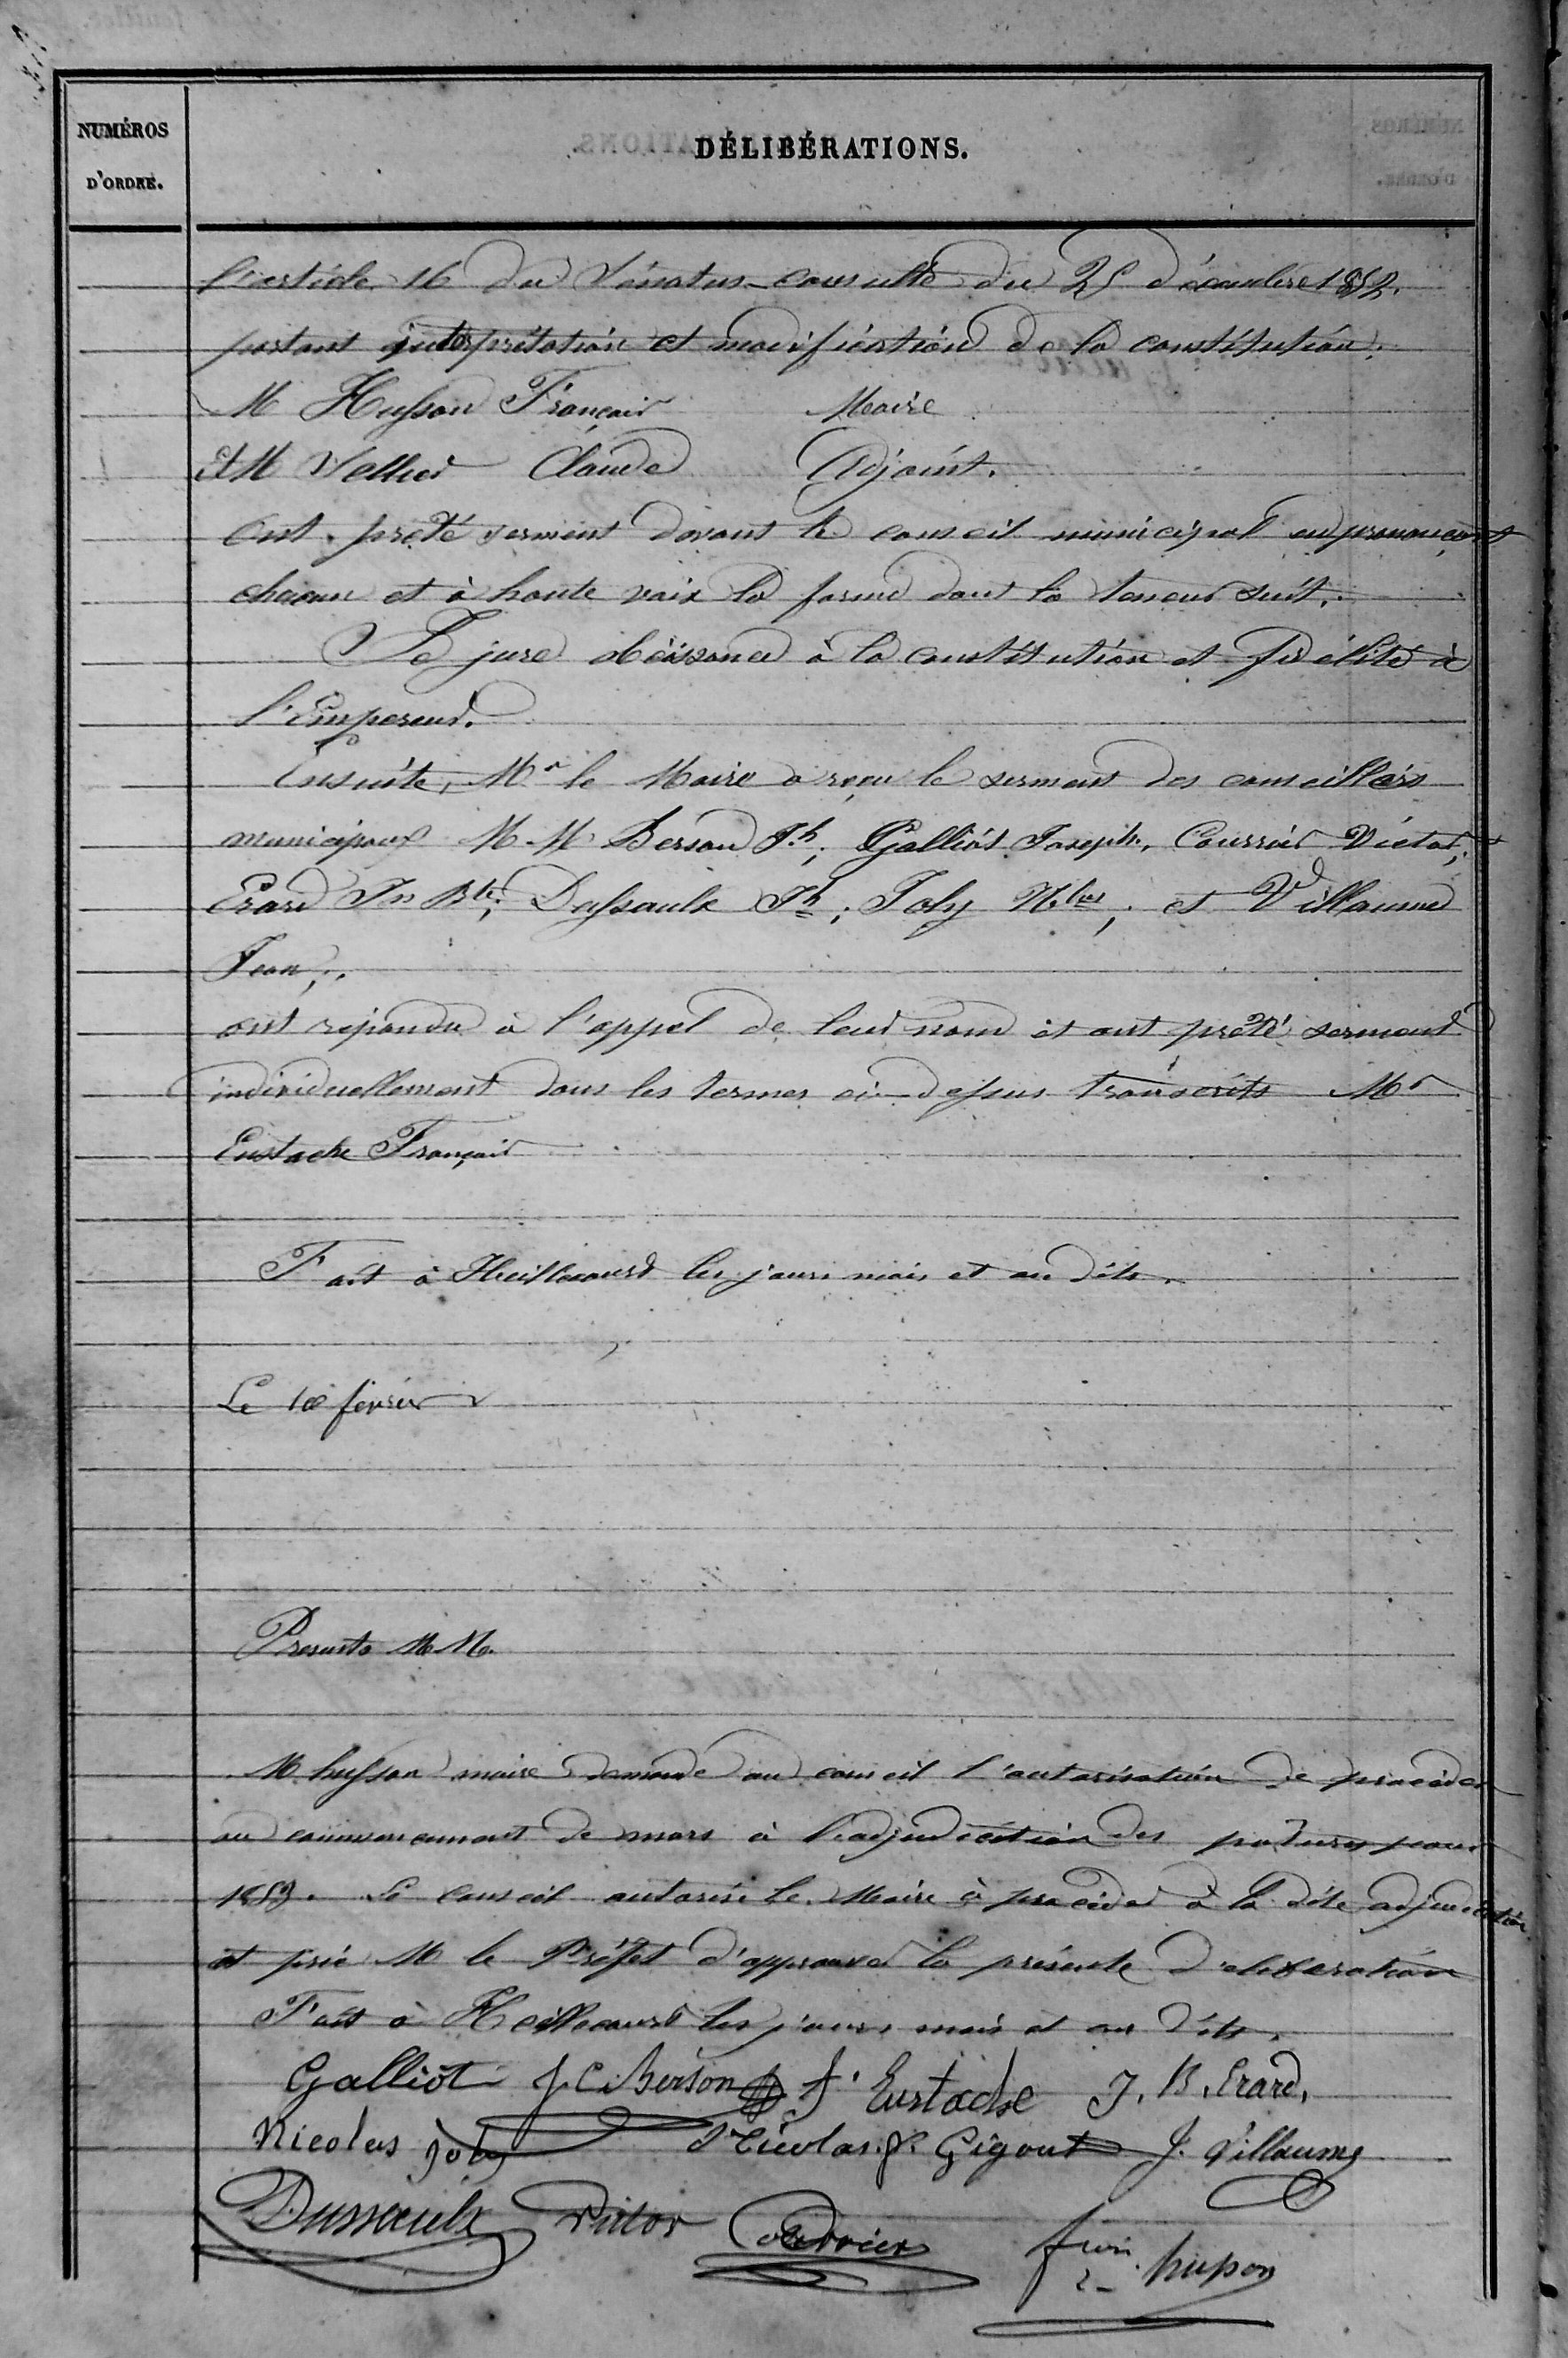 NUMÉROS
D'ORDRE.
DÉLIBÉRATIONS.
l'article 16 du Sénatus-consulte du 25 décembre 1852.
portant interprétation et modification de la constitution.
M Husson François Maire
et M Claude Adjoint.
ont preté serment devant le conseil municipal en prononçant
chacun et à haute voix la forme dont la teneur suit.
Je jure obéissance à la constitution et fidélité à
l'Empereur.
Ensuite, Mr le Maire a reçu le serment des conseillers
municipaux M.M Berson Jh; Galliot Joseph, Courrier Victor;
Erard Jn Bte; Dussaulx Jh; Joly Nlas; et Villaume
Jean;.
ont repondu à l'appel de leur nom et ont prêté serment
individuellement dans les termes ci-dessus transcrits Mr
Eustache François
Fait à Heillecourt les jours mois et an dits.
Le février
Presents MM.
M. husson maire demande au conseil l'autorisation de procéder
au commencement de mars à l'adjudication des patures pour
1859. Le Conseil autorise le Maire à procéder à la dite adjudication
et prie M le Préfet d'approuver la présente délibération
Fait à Heillecourt les jours mois et an dits.
Galliot J C Berson F. Eustache J. B. Erard,
Nicolas Joly Nicolas. Gigout J. Villaume
Dussaulx Victor Courrier
husson